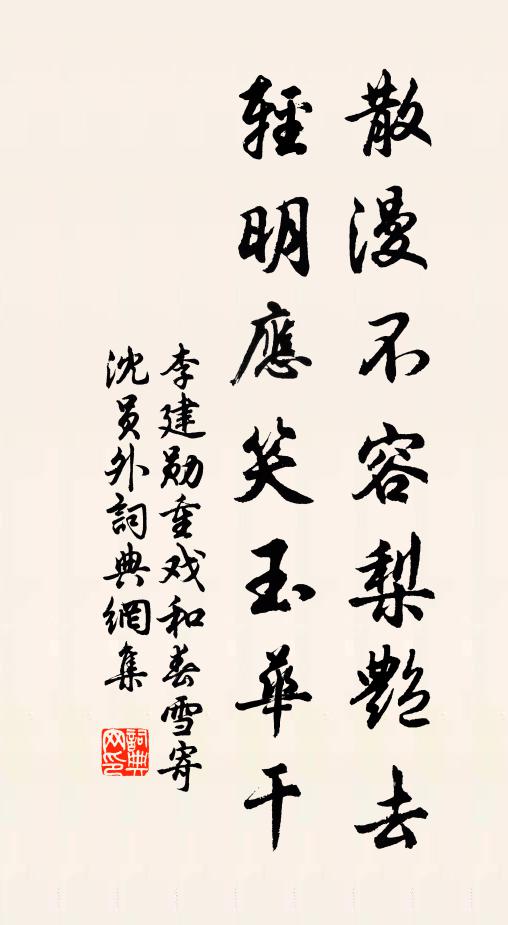 散漫不容梨艷去
輕明應笑玉華干
李建勋重戏和春雪寄
沈员外詞典網集
詞典網印